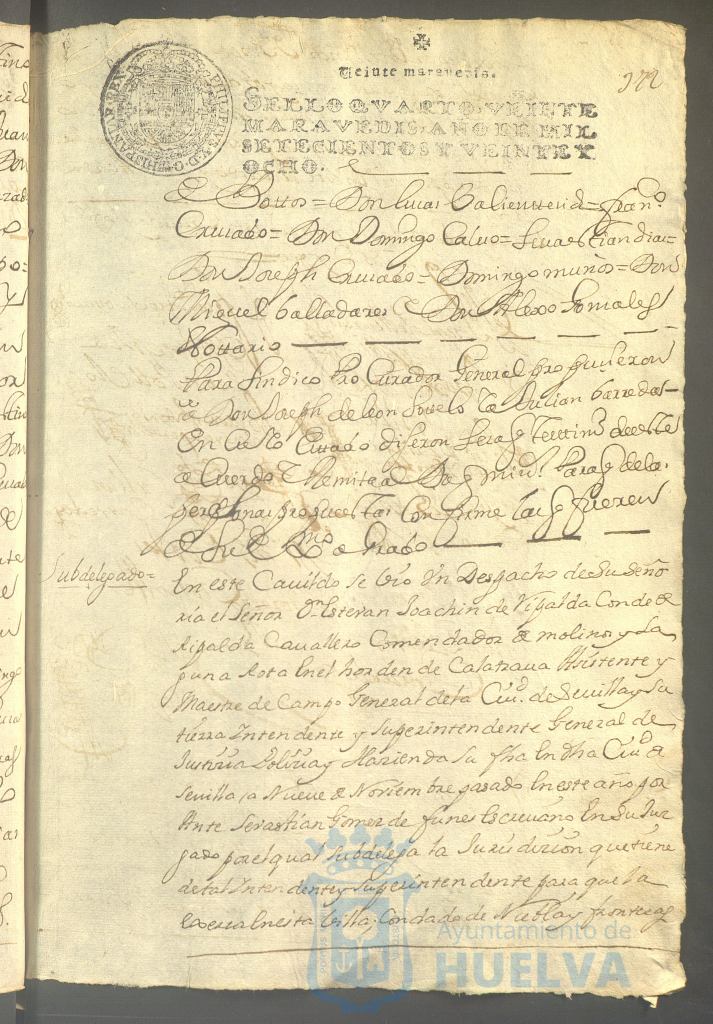 372
Veinte maravedis.
SELLO QVARTO, VEINTE
MARAVEDIS, AÑO DE MIL
SETECIENTOS Y VEINTE Y
OCHO.
PHILIPPVS V D G HISPANIAR REX
Don Lucas = Fran.co
Cruzado = Don Domingo Calvo = Sevastian dias =
Don Joseph Cruzado = Domingo muños = Don
Miguel Valladares Don Alexo Gonzales
Nottario
Para Sindico Procurador General propusieron
a Don Joseph de leon Julian
En Cuio dijeron este
a Cuerdo Remita a para
personas propuestas Confirme las q fueren
de su agrado
Subdelegado =
En este Cavildo se vio Un Despacho de su Seño
ria el Señor Dn Estevan Joachin de Ripalda Conde de
Ripalda Cavallero Comendador de molinos y La
guna Rota En el horden de Calatrava Asistente y
Maestre de Campo General de la Ciud. de Sevilla y su
tierra Intendente y Superintendente General de
Justicia Polizia y Hazienda su fha En dha Ciud. de
Sevilla a Nueve de Noviembre pasado En este año por
Ante Sebastian Gomez de funes Escrivano En su Juz
gado por el qual subdelega la Jurisdizion que tiene
de tal Intendente y Superintendente para que la
exerza En esta Villa, Condado de Niebla y fronteras
Ayuntamiento de
HUELVA